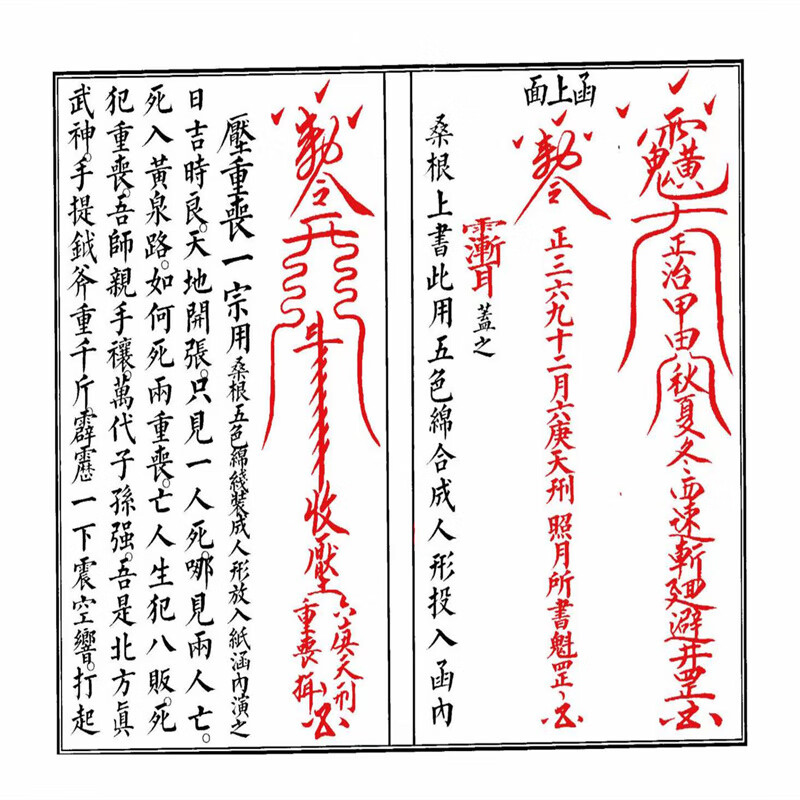 正治甲田秋夏冬 速斬廻避井罡
函上面
勅令 正三六九十二月六庚天刑 照月所書魁罡
蓋之
桑根上書此用五色綿合成人形投入函內
勅令 收壓
六庚天刑
重喪
壓重喪一宗用桑根五色綿綫裝成人形放入紙涵內演之
日吉時良。天地開張。只見一人死。哪見兩人亡。
死入黃泉路。如何死兩重喪。亡人生犯八販。死
犯重喪。吾師親手禳。萬代子孫强。吾是北方眞
武神。手提鉞斧重千斤。霹靂一下震空響。打起